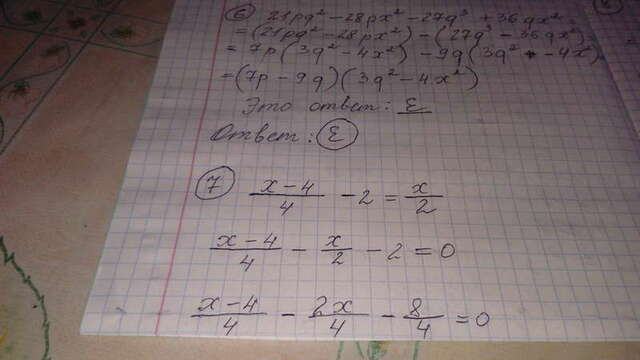 ⑥ 21pq² - 28px² - 27q³ + 36qx² =
= (21pq² - 28px²) - (27q³ - 36qx²)
= 7p(3q² - 4x²) - 9q(3q² - 4x²)
= (7p - 9q)(3q² - 4x²)
Это ответ: Е
Ответ: Ⓔ
⑦ (x-4)/4 - 2 = x/2
(x-4)/4 - x/2 - 2 = 0
(x-4)/4 - 2x/4 - 8/4 = 0